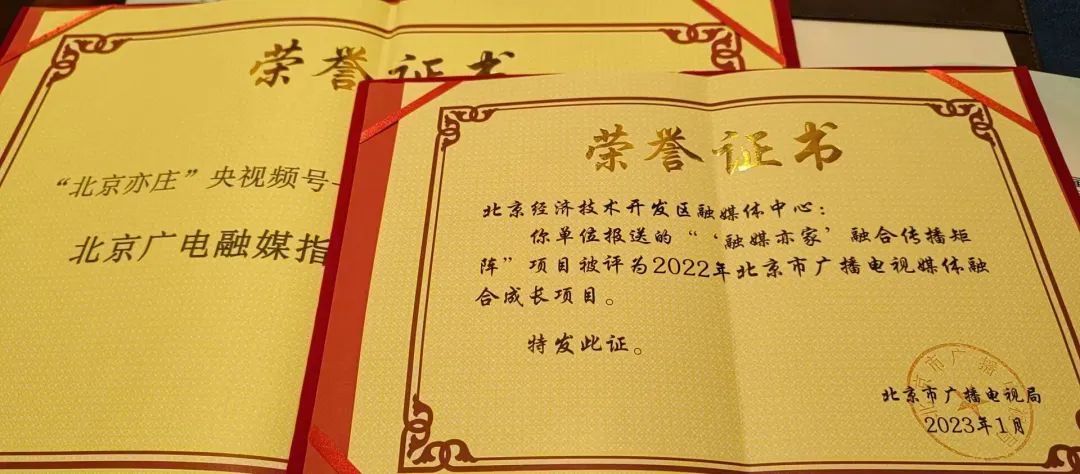 荣誉证书
“北京亦庄”央视频号
北京广电融媒指
荣誉证书
北京经济技术开发区融媒体中心：
你单位报送的“‘融媒亦家’融合传播矩
阵”项目被评为2022年北京市广播电视媒体融
合成长项目。
特发此证。
北京市广播电视局
2023年1月